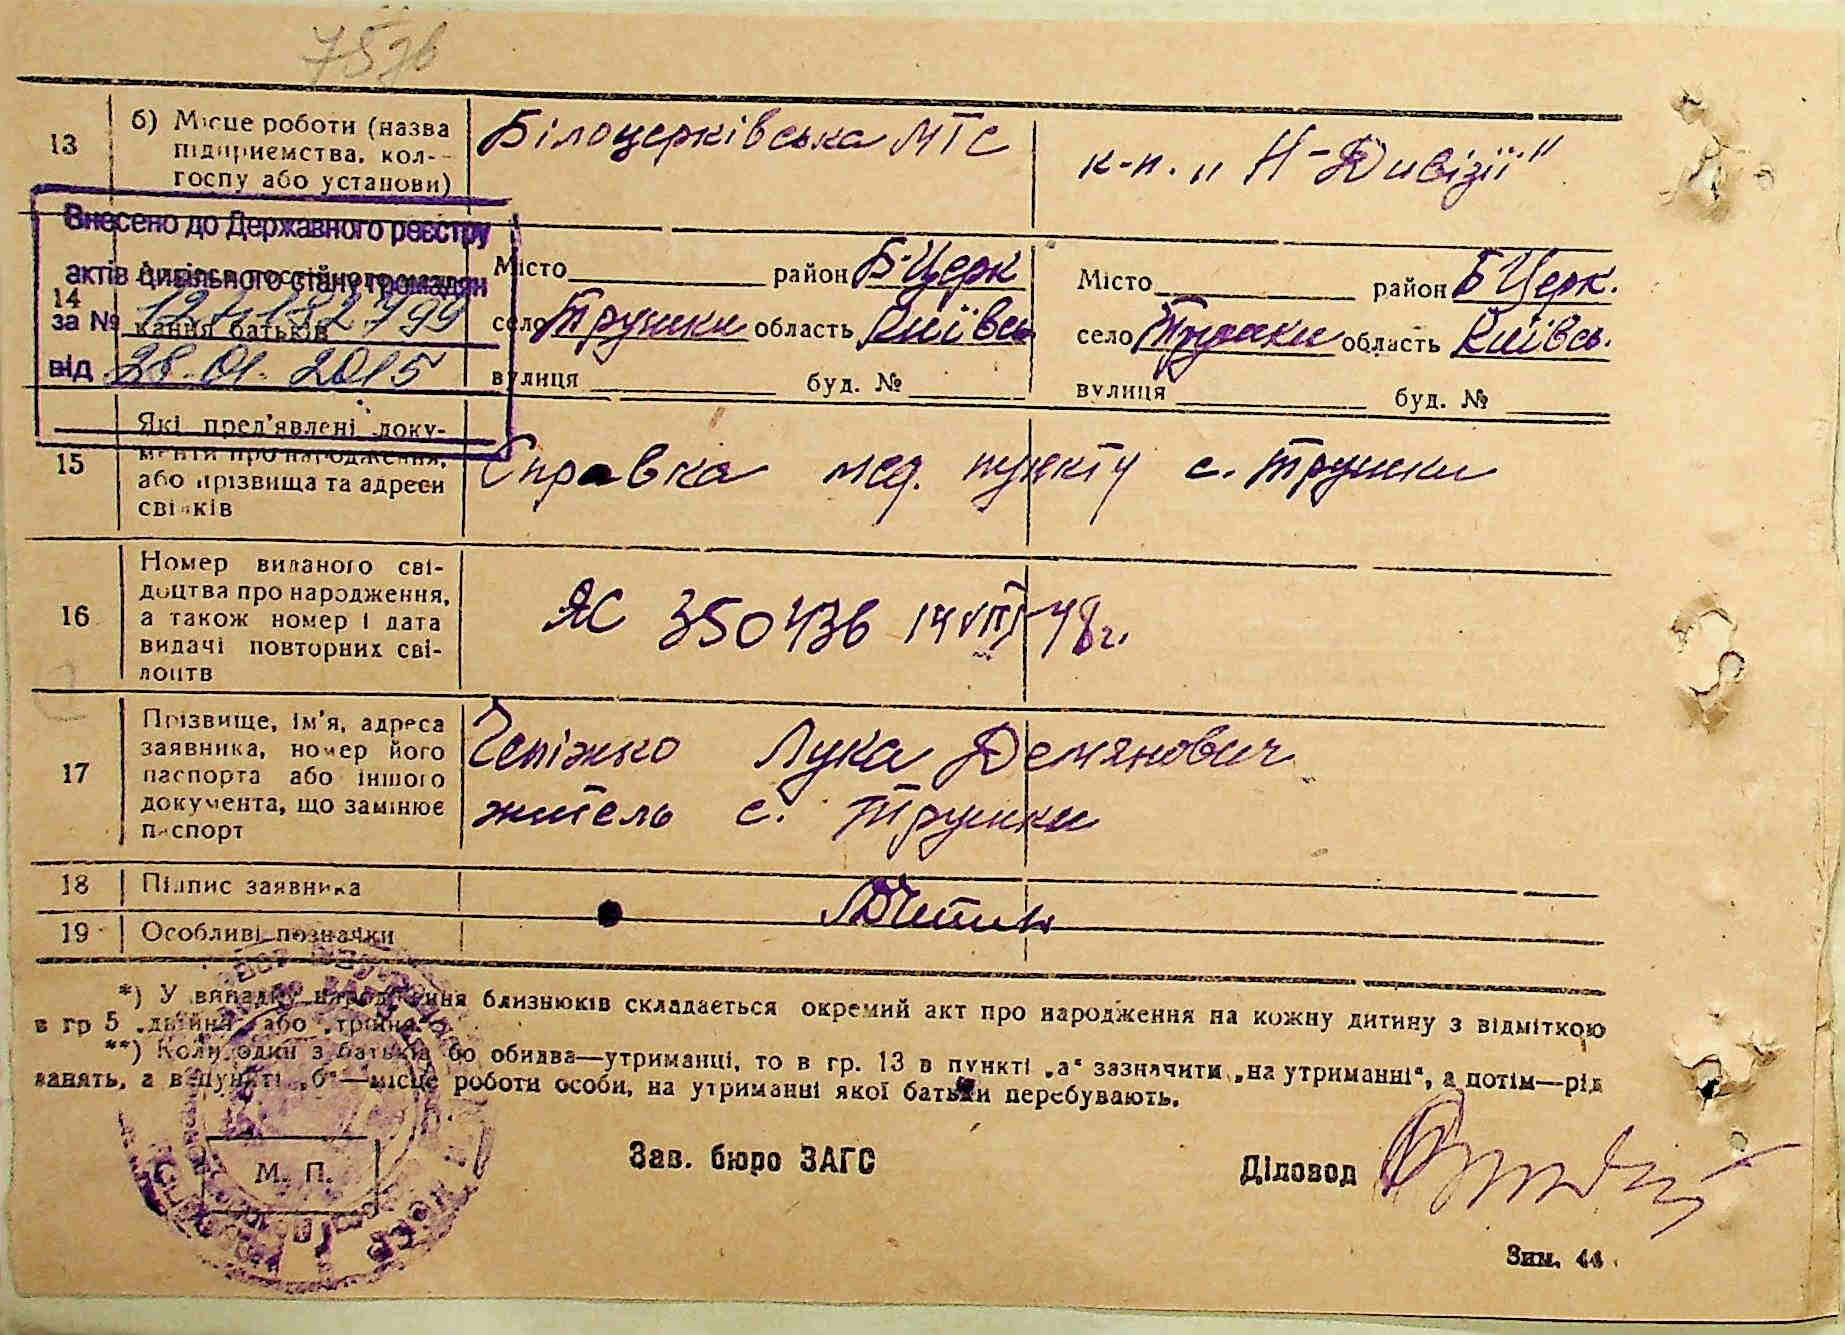 13
б) Місце роботи (назва
підприємства, кол-
госпу або установи)
Білоцерківська МТС
к-п. „ Н-Дивізії"
Внесено до Державного реєстру
актів цивільного стану громадян
за №
від 28.01.2015
14
кання батьків
Місто район Б-Церк
село Трушки область Київсь
вулиця буд. №
Місто район Б Церк.
село Трушки область Київсь.
вулиця буд. №
15
Які пред'явлені доку-
менти про народження,
або прізвища та адреси
свідків
Справка мед. пункту с. Трушки
16
Номер виданого сві-
доцтва про народження,
а також номер і дата
видачі повторних сві-
доцтв
ЯС 350436 14 VIII-48г.
17
Прізвище, ім'я, адреса
заявника, номер його
паспорта або іншого
документа, що замінює
паспорт
Чепіжко Лука Демянович
житель с. Трушки
18
Підпис заявника
19
Особливі позначки
*) У випадку народження близнюків складається окремий акт про народження на кожну дитину з відміткою
в гр 5 „двійня" або „трійня".
**) Коли один з батьків бо обидва—утриманці, то в гр. 13 в пункті „а" зазначити „на утриманні", а потім—рід
занять, а в пункті „б"—місце роботи особи, на утриманні якої батьки перебувають.
М. П.
Зав. бюро ЗАГС
Діловод
Зим. 44